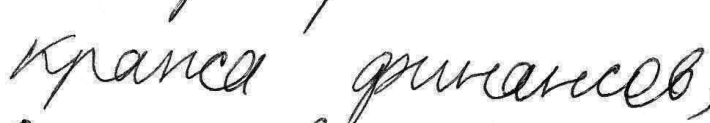 кранса финансов,